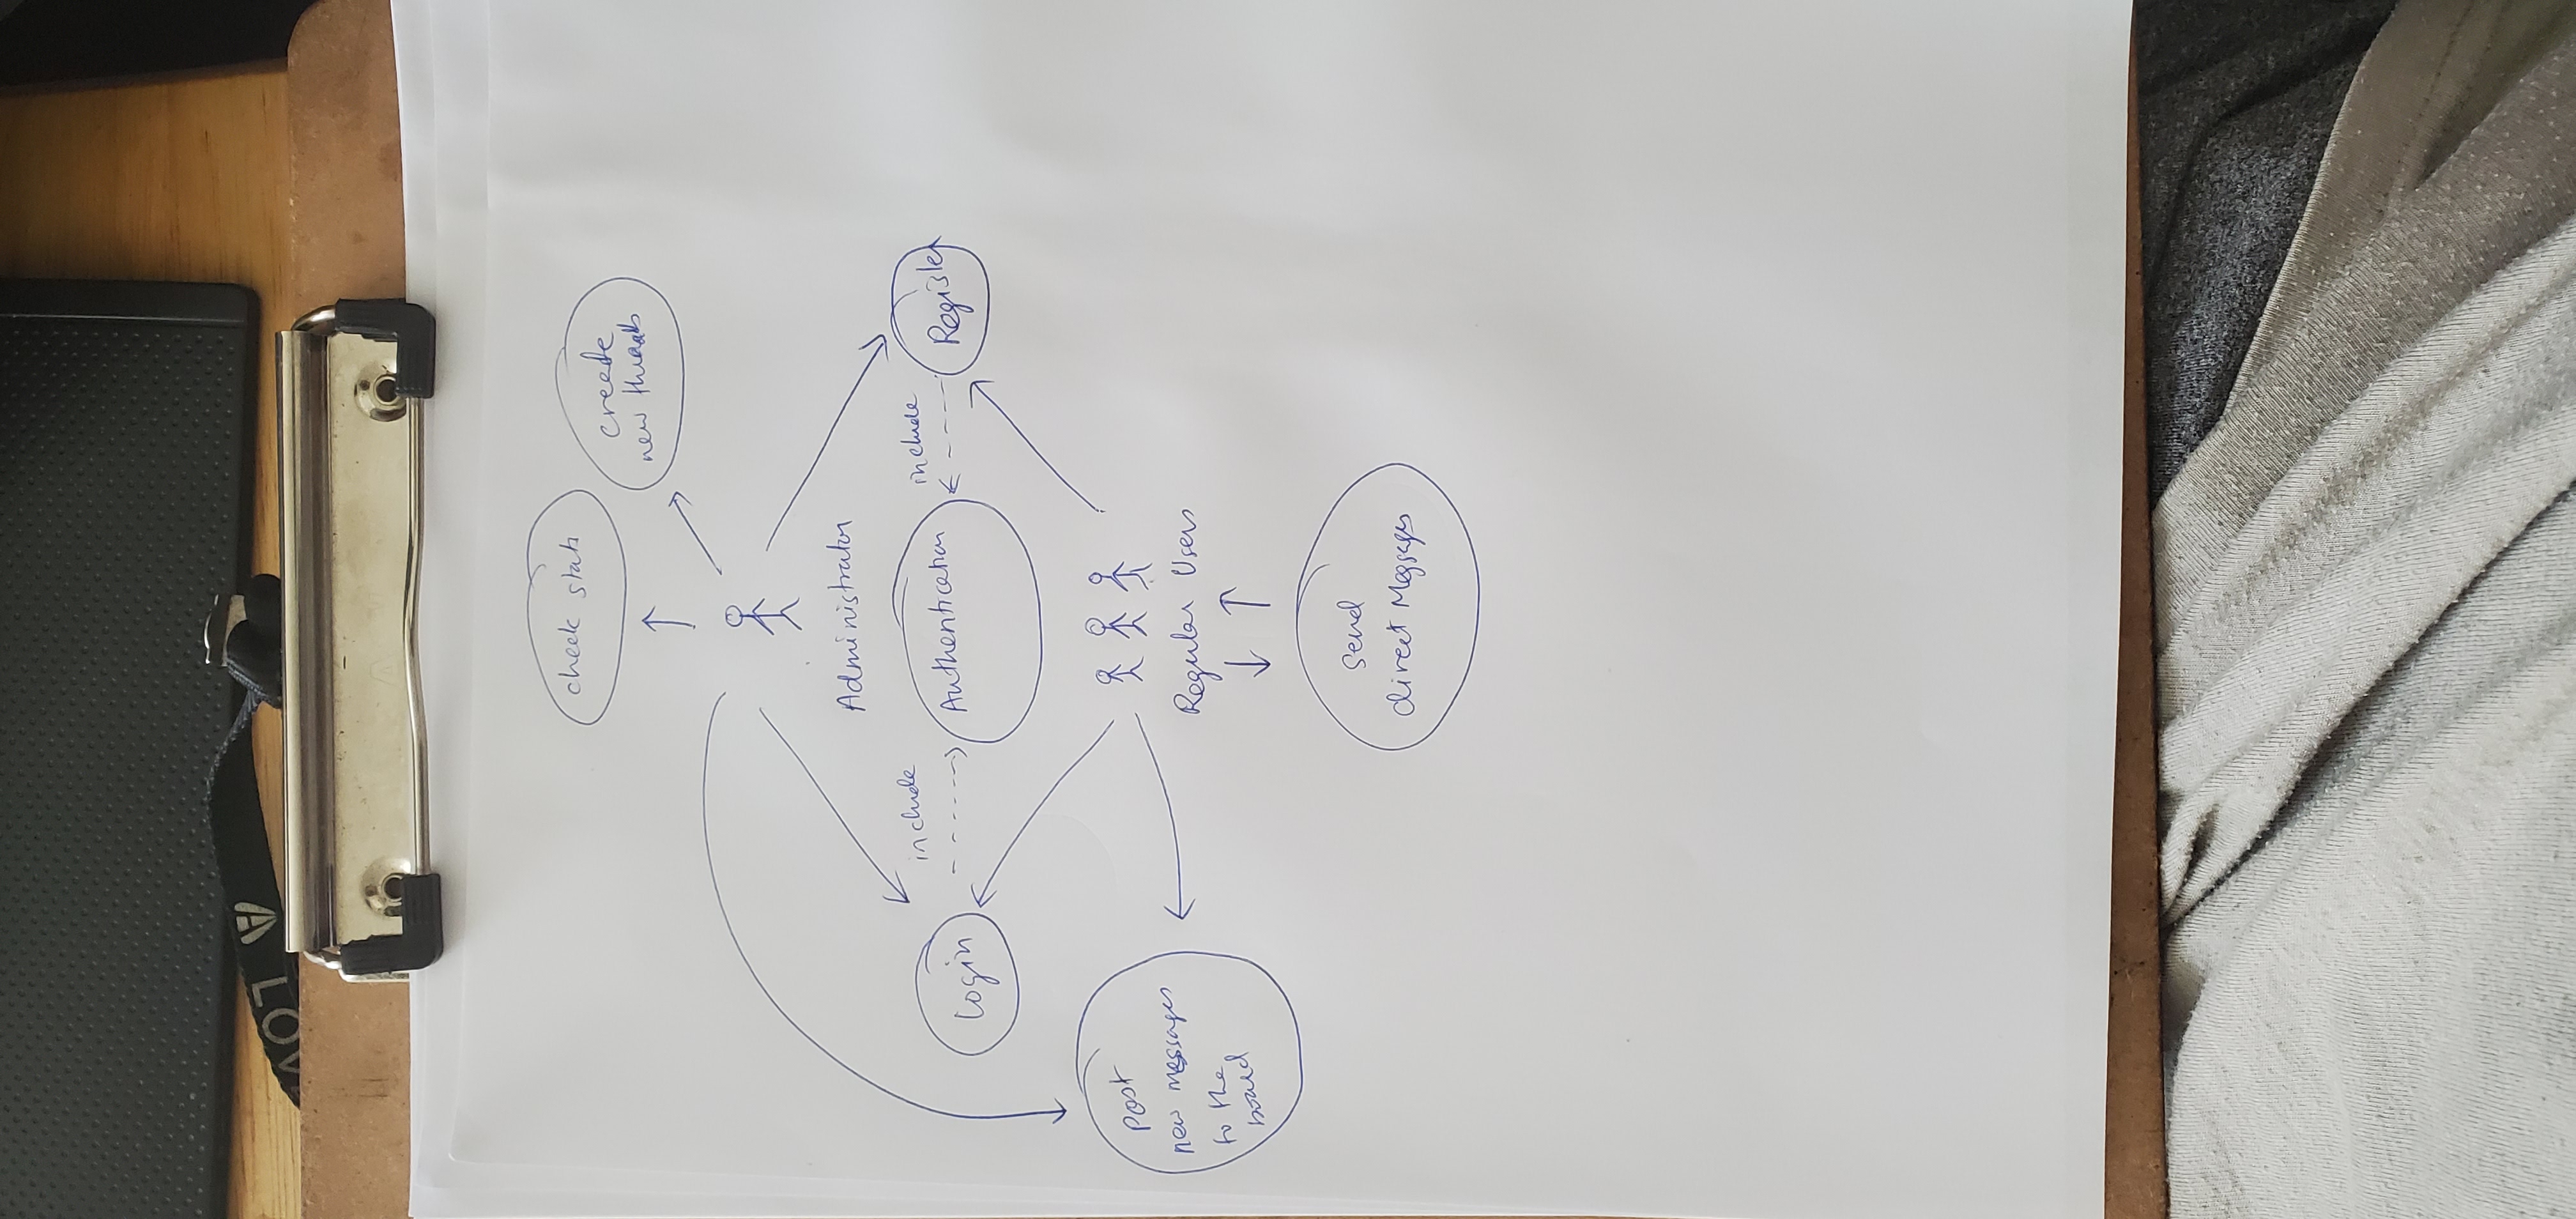 LOV
check stats
create
new threads
Administrator
include
include
Login
Authentication
Register
Post
new messages
to the
board
Regular Users
Send
direct Messages